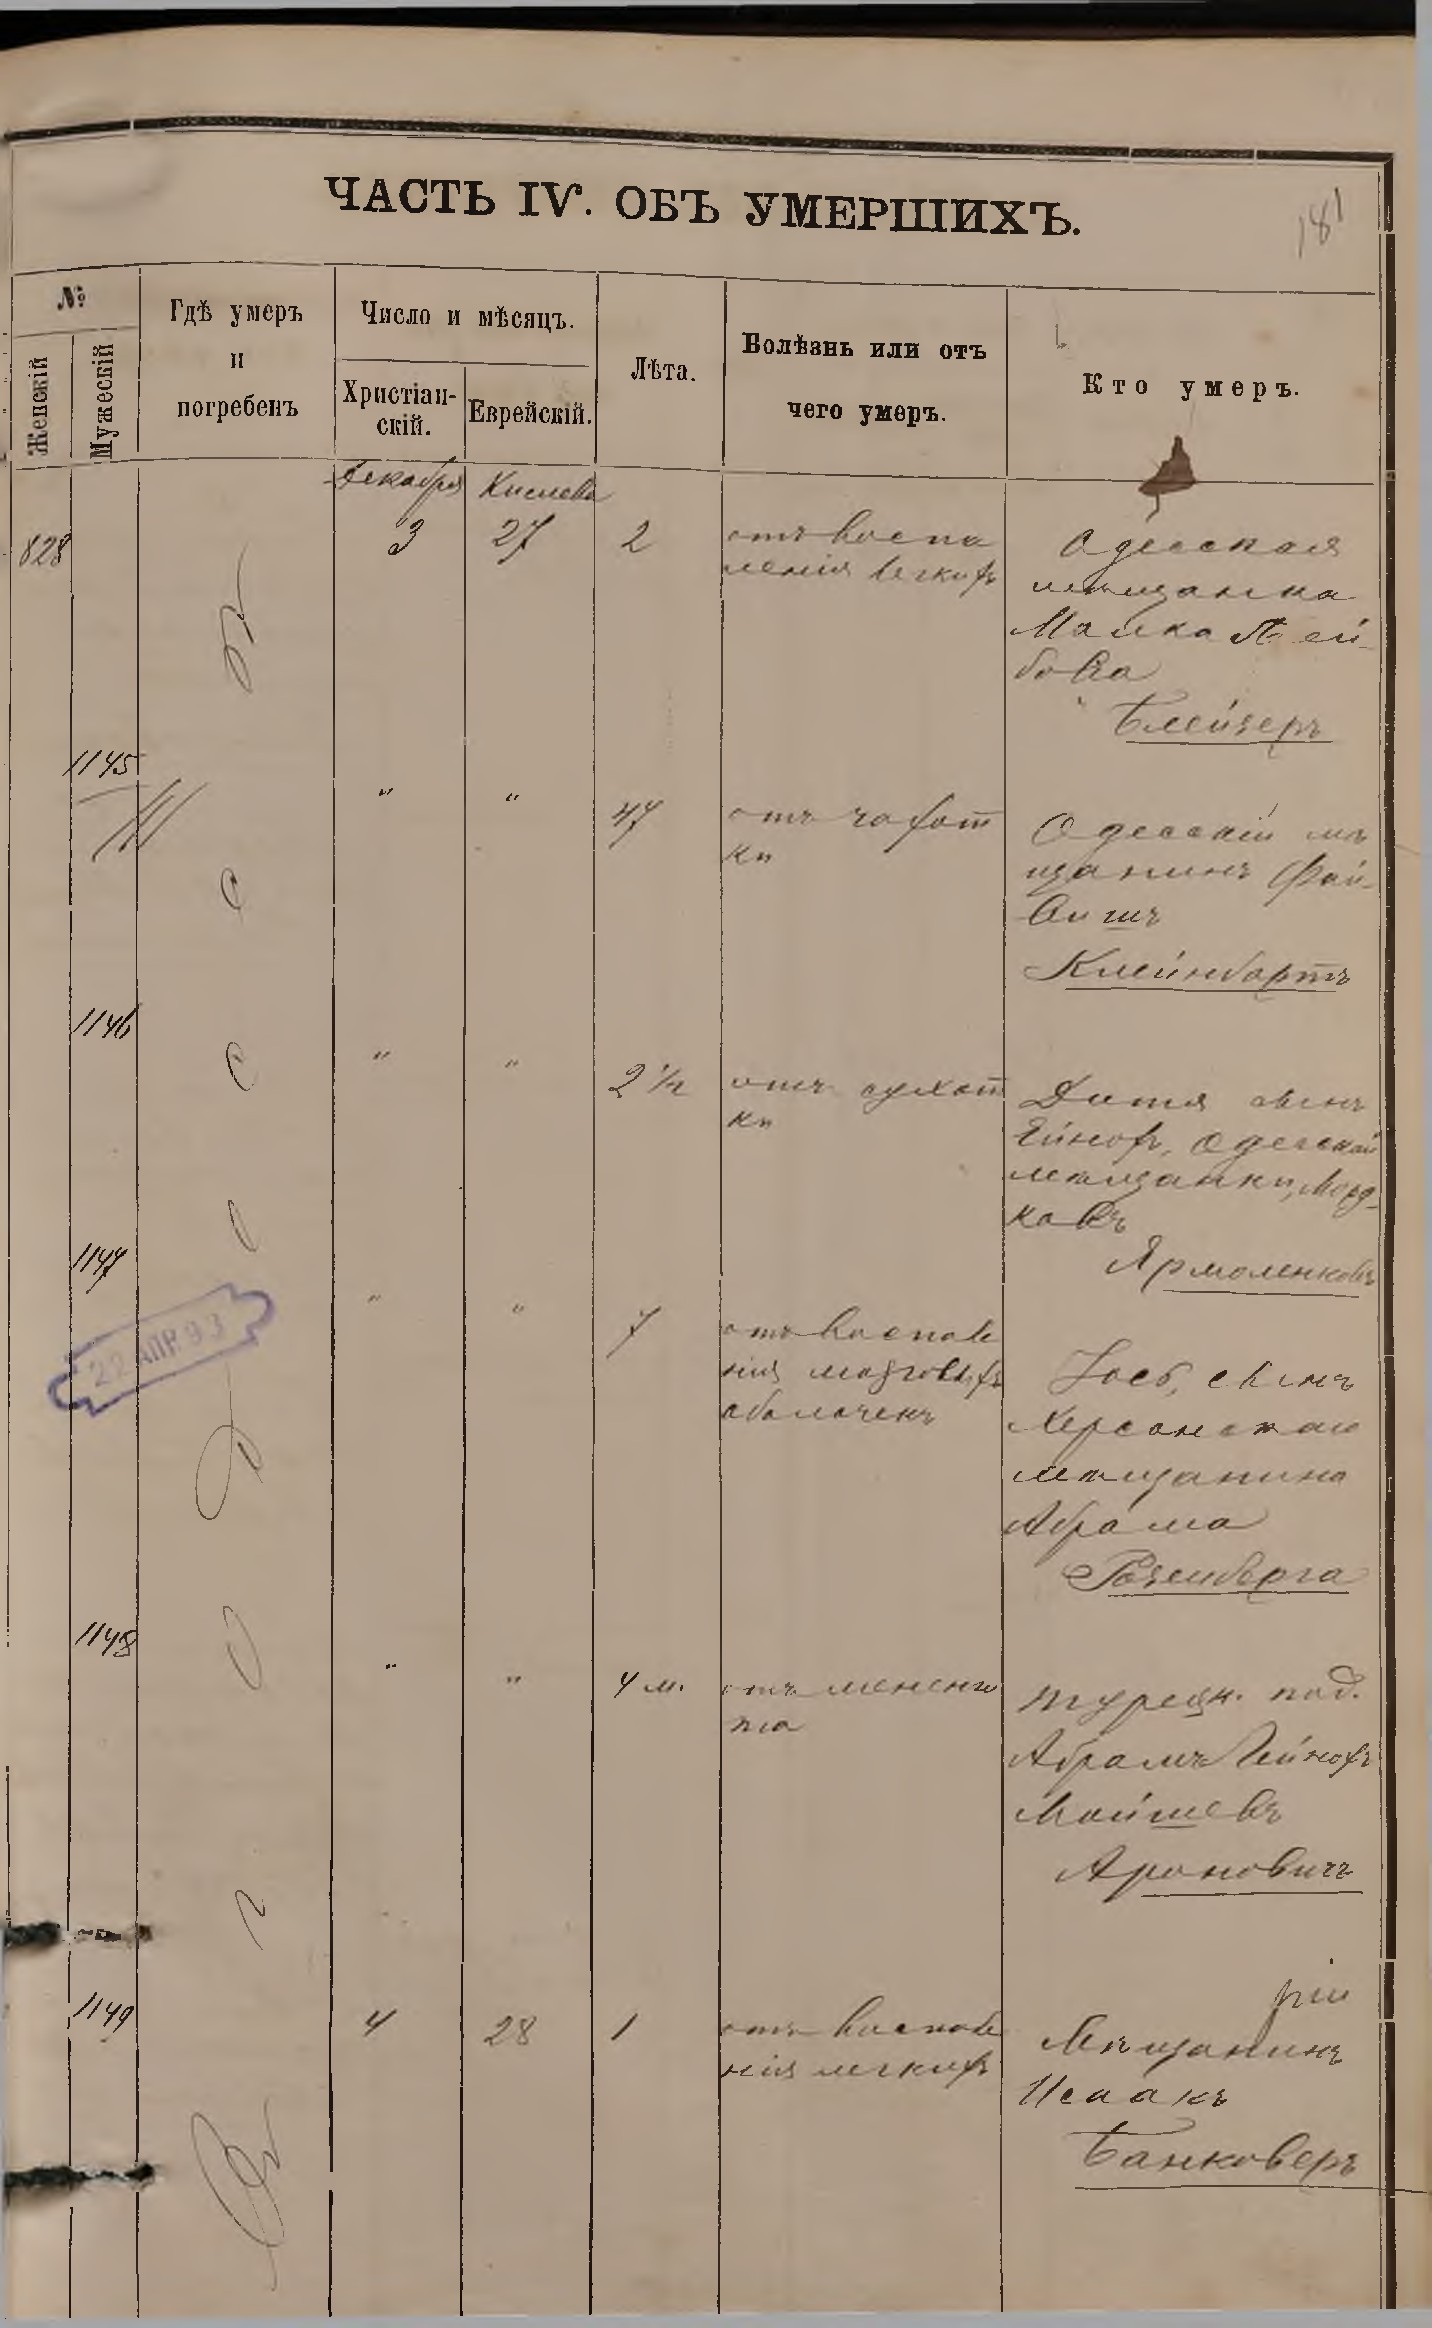 ЧАСТЬ IV. ОБЪ УМЕРШИХЪ.
181
№
Женскій
Мужескій
Гдѣ умеръ
и
погребенъ
Число и мѣсяцъ.
Христіан-
скій.
Еврейскій.
Лѣта.
Болѣзнь или отъ
чего умеръ.
Кто умеръ.
Декабря
Кислева
828
3
27
2
отъ воспа
ленія легкихъ
Одесская
мѣщанка
Малка Лей-
бова
Блейзеръ
1145
"
"
47
отъ чахот
ки
Одесскій мѣ
щанинъ Фай-
вишъ
Клейнбортъ
1146
"
"
2 ½
отъ сухот
ки
Дитя сынъ
Одесской
мѣщанки, Морд-
ковъ
Ярмоленковъ
1147
"
"
7
отъ воспале
нія мозговыхъ
оболочекъ
Іосъ, сынъ
Херсонскаго
мѣщанина
Абрама
Розенберга
22 АПР 93
1148
"
"
4 м.
отъ менинги
та
Турецк. под.
Абрамъ
Мойшевъ
Ароновичъ
1149
4
28
1
отъ воспале
нія легкихъ
Мѣщанинъ
Исаакъ
Банковеръ
Въ г. Одессѣ